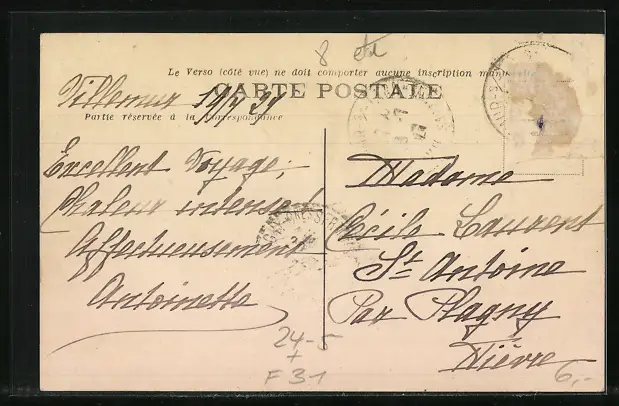 8
Le Verso (côté vue) ne doit comporter aucune inscription manuscrite
CARTE POSTALE
Partie réservée à la Correspondance
Villemur 19/7 29
Excellent voyage,
Chaleur intense
Affectueusement
Antoinette
Madame
Cécile Laurent
St Antoine
Par Plagny
Nièvre
24-5
+
F 31
6,-